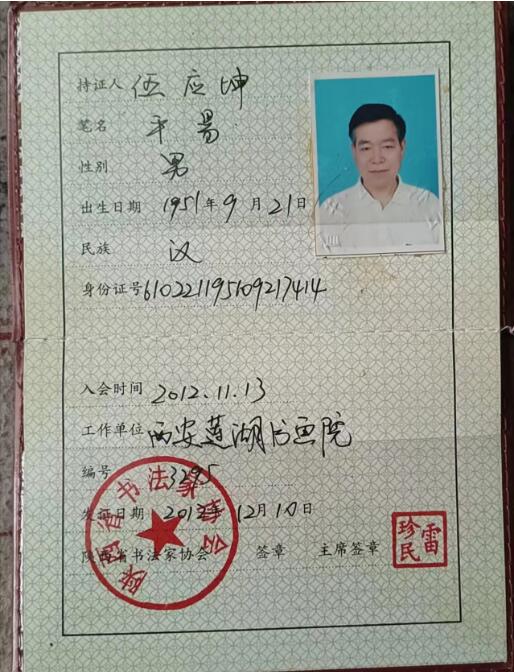 持证人 伍应坤
笔名 平易
性别 男
出生日期 1951年9月21日
民族 汉
身份证号 610221195109217414
入会时间 2012.11.13
工作单位 西安莲湖书画院
编号 3295
发证日期 2012年12月10日
陕西省书法家协会 签章 主席签章
陕西省书法家协会
雷珍民